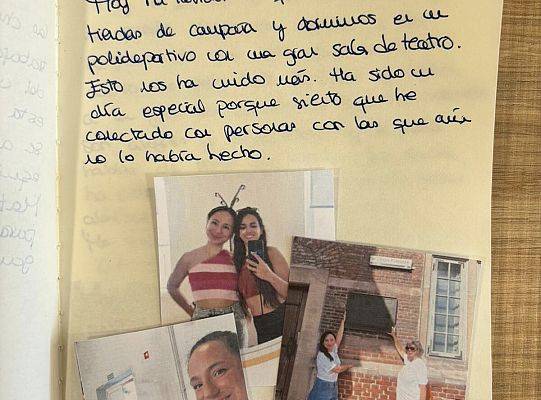 Hoy ha llovido
tiendas de campaña y dormimos en un
polideportivo con una gran sala de teatro.
Esto nos ha unido más. Ha sido un
día especial porque siento que he
conectado con personas con las que aún
no lo había hecho.